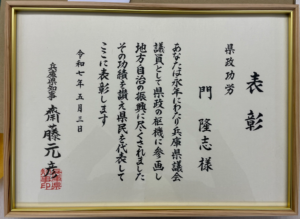 表彰
県政功労
門 隆志 様
あなたは永年にわたり兵庫県議会
議員として県政の枢機に参画し
地方自治の振興に尽くされました
その功績を讃え県民を代表して
ここに表彰します
令和七年五月三日
兵庫県知事 齋藤元彦